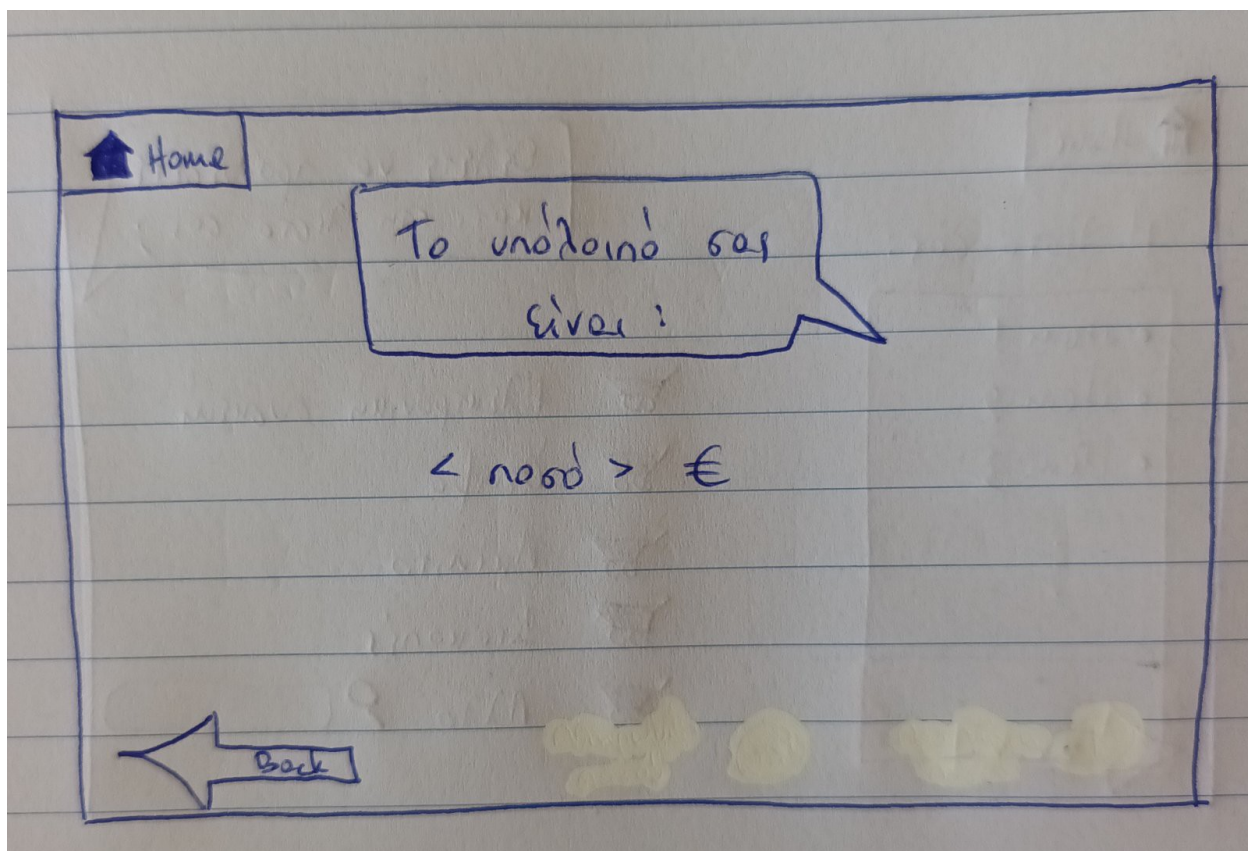 Home
Το υπόλοιπό σας
είναι :
< ποσό > €
Back